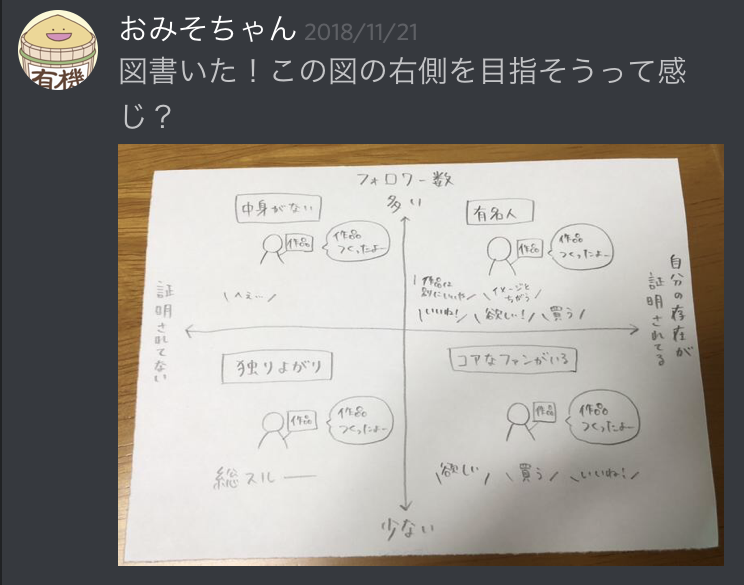 有機
おみそちゃん 2018/11/21
図書いた！この図の右側を目指そうって感
じ？
フォロワー数
多い
中身がない
作品
作品
つくったよー
へぇ…
有名人
作品
作品
つくったよー
作品は
イメージと
ちがう
いいね!
欲しい!
買う
証明されてない
自分の存在が
証明されてる
独りよがり
作品
作品
つくったよー
総スルー
コアなファンがいる
作品
作品
つくったよー
欲しい
買う
いいね!
少ない